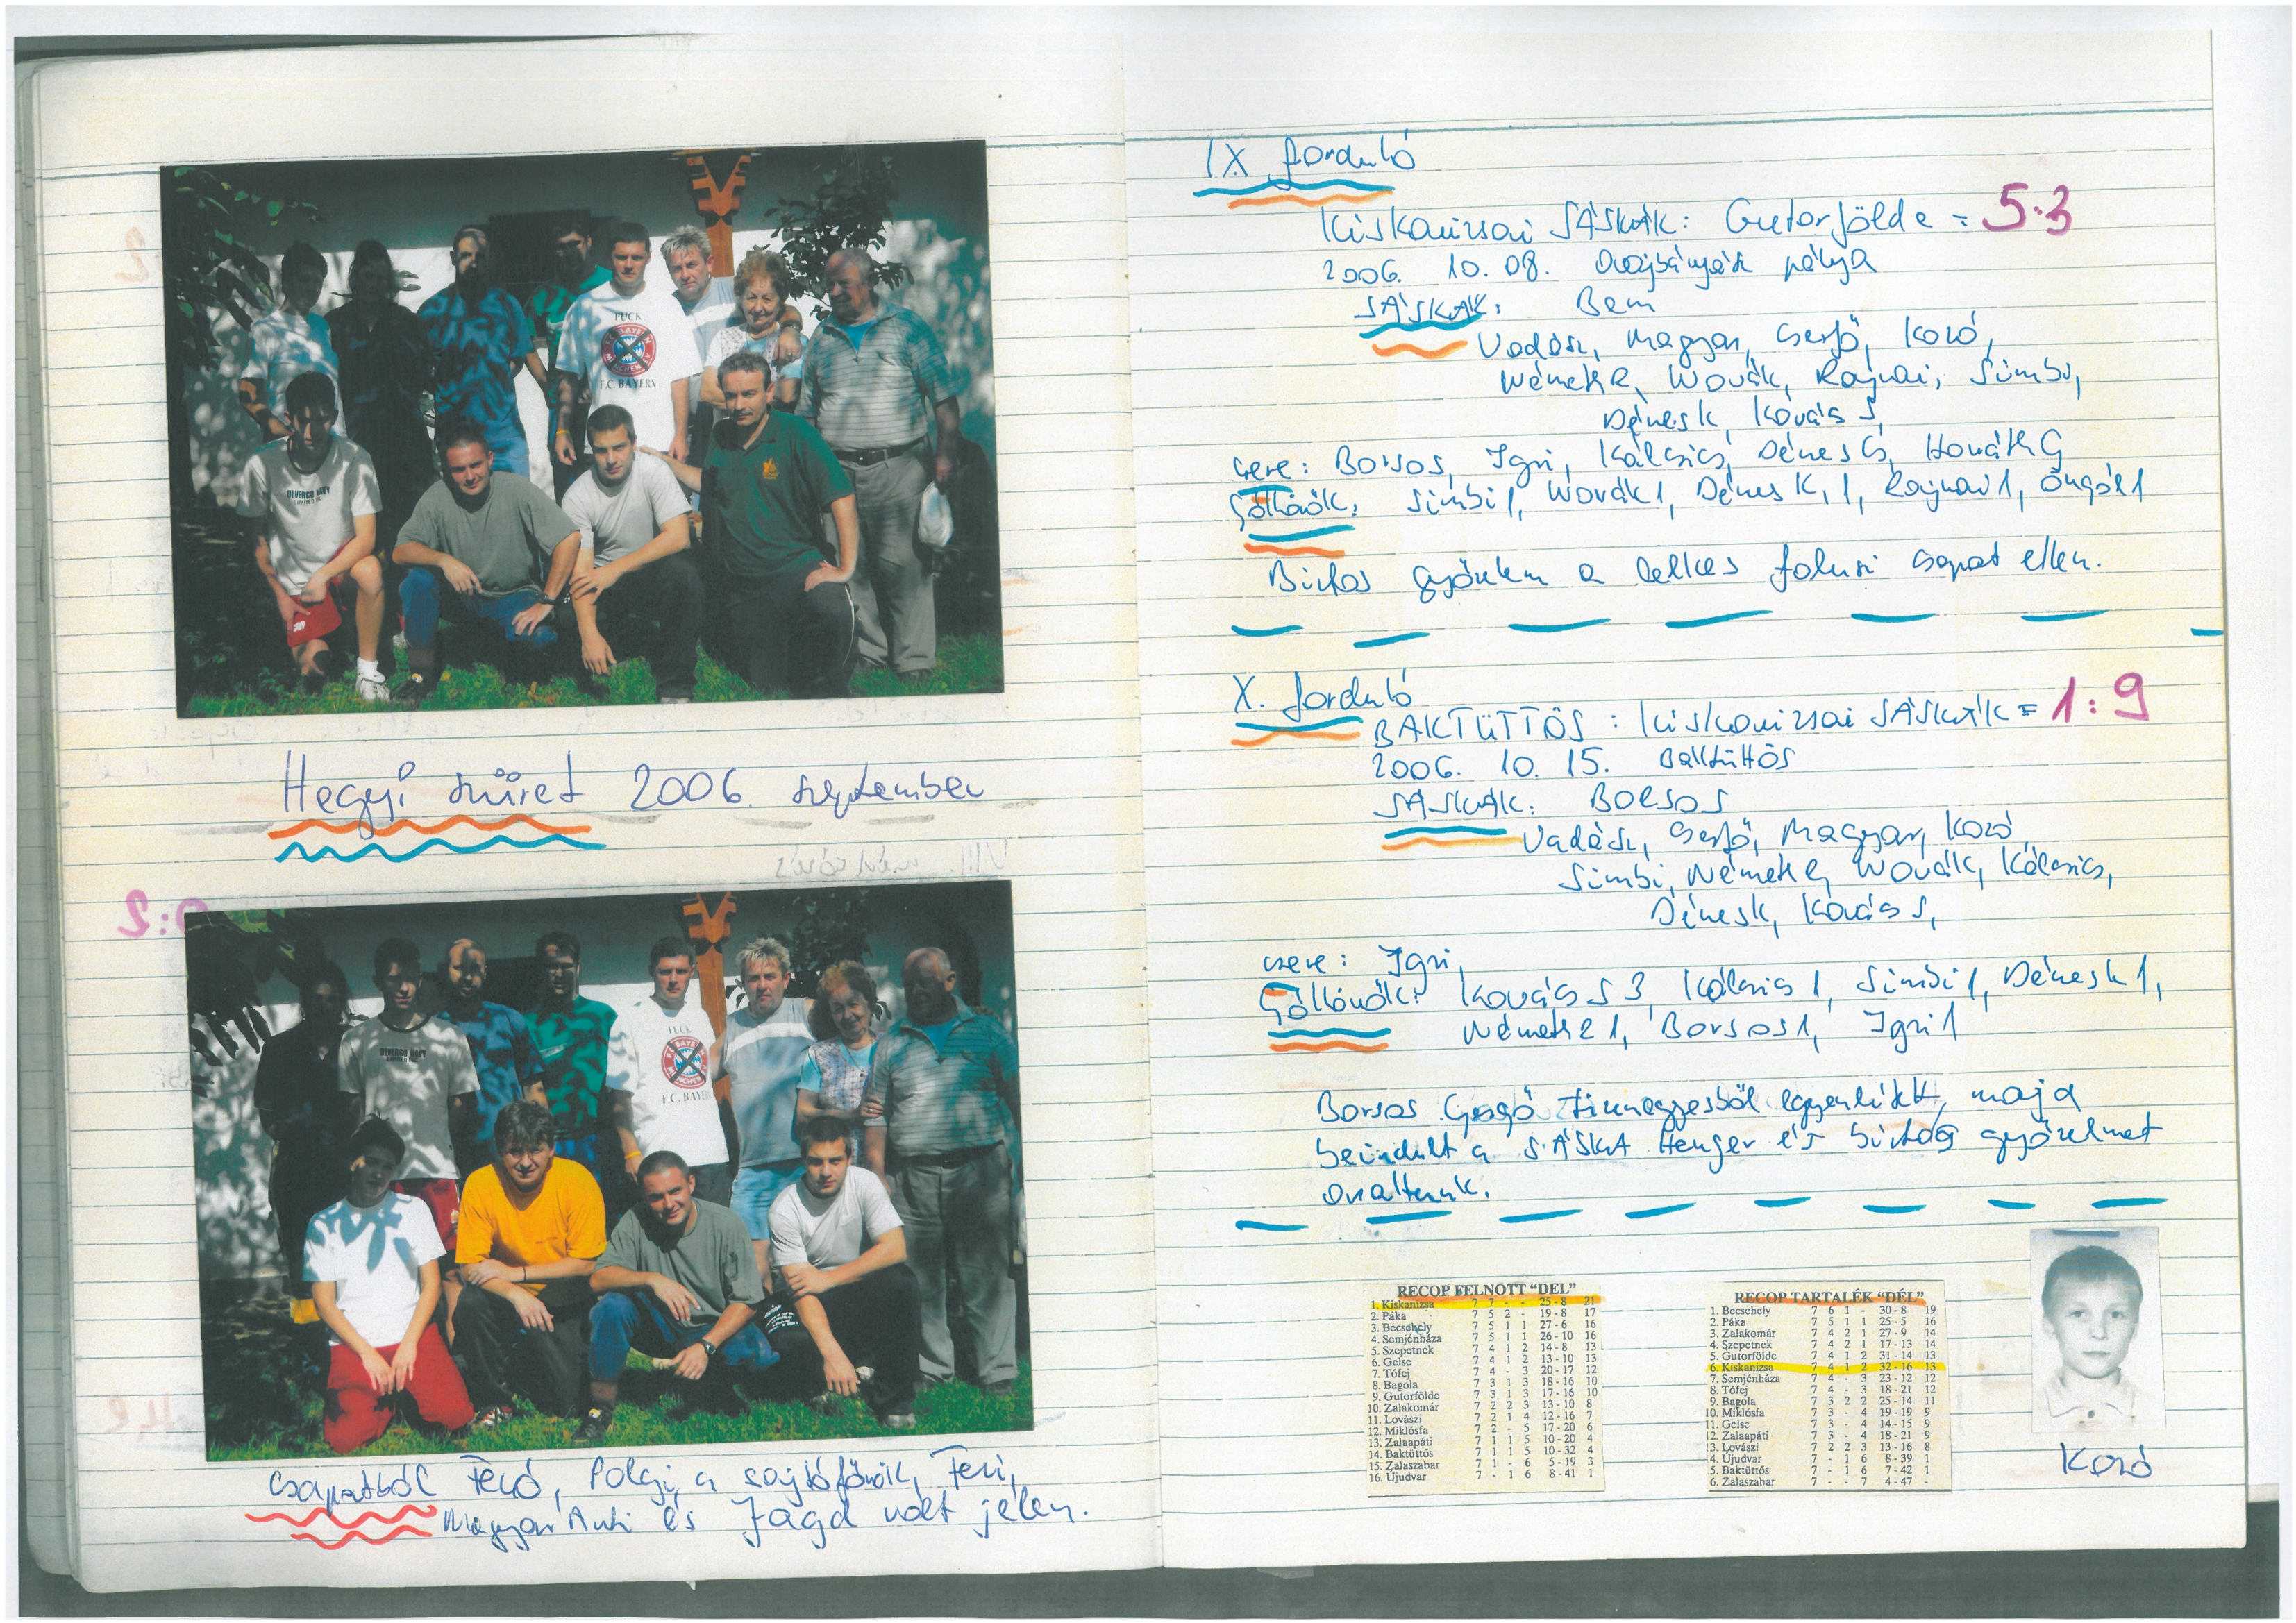 FUCK
F.C. BAYERN
DEVERGO NAVY
Hegyi szüret 2006. szeptember
DEVERGO NAVY
FUCK
F.C. BAYERN
csapatból Fecó, Polgi, a sajtófőnök, Feri,
Magyar Anti és Jaga volt jelen.
IX forduló
Kiskanizsai SÁSKÁK: Gutorfölde = 5:3
2006. 10. 08. Olajbányák pálya
SÁSKÁK: Bem
Vadász, Magyar, Cserfő, Kozó,
Németh R, Wovák, Rajnai, Simbi,
Dénes K, Kovács S,
csere: Borsos, Igri, Kálcsics, Dénes Cs, Horváth G
Góllövők: Simbi 1, Wovák 1, Dénes K, 1, Rajnai 1, Öngól 1
Biztos győzelem a lelkes falusi csapat ellen.
X. forduló
BAKTÜTTÖS : Kiskanizsai SÁSKÁK = 1:9
2006. 10. 15. Baktüttös
SÁSKÁK: BORSOS
Vadász, Cserfő, Magyar, Kozó
Simbi, Németh R, Wovák, Kálcsics,
Dénes K, Kovács S,
csere: Igri,
Góllövők: Kovács S 3, Kálcsics 1, Simbi 1, Dénes K 1,
Németh R 1, Borsos 1, Igri 1
Borsos Gogó tizenegyesből egyenlített, majd
beindult a SÁSKA Henger és biztos győzelmet
arattunk.
RECOP FELNŐTT "DÉL"
1. Kiskanizsa 7 7 - - 25-8 21
2. Páka 7 5 2 - 19-8 17
3. Becsehely 7 5 1 1 27-6 16
4. Semjénháza 7 5 1 1 26-10 16
5. Szepetnek 7 4 1 2 14-8 13
6. Gelse 7 4 1 2 13-10 13
7. Tófej 7 4 - 3 20-17 12
8. Bagola 7 3 1 3 18-16 10
9. Gutorfölde 7 3 1 3 17-16 10
10. Zalakomár 7 2 2 3 13-10 8
11. Lovászi 7 2 1 4 12-16 7
12. Miklósfa 7 2 - 5 17-20 6
13. Zalaapáti 7 1 1 5 10-20 4
14. Baktüttös 7 1 1 5 10-32 4
15. Zalaszabar 7 1 - 6 5-19 3
16. Újudvar 7 - 1 6 8-41 1
RECOP TARTALÉK "DÉL"
1. Becsehely 7 6 1 - 30-8 19
2. Páka 7 5 1 1 25-5 16
3. Zalakomár 7 4 2 1 27-9 14
4. Szepetnek 7 4 2 1 17-13 14
5. Gutorfölde 7 4 1 2 31-14 13
6. Kiskanizsa 7 4 1 2 32-16 13
7. Semjénháza 7 4 - 3 23-12 12
8. Tófej 7 4 - 3 18-21 12
9. Bagola 7 3 2 2 25-14 11
10. Miklósfa 7 3 - 4 19-19 9
11. Gelse 7 3 - 4 14-15 9
12. Zalaapáti 7 3 - 4 18-21 9
3. Lovászi 7 2 2 3 13-16 8
4. Újudvar 7 - 1 6 8-39 1
5. Baktüttös 7 - 1 6 7-42 1
6. Zalaszabar 7 - - 7 4-47 -
Kozó